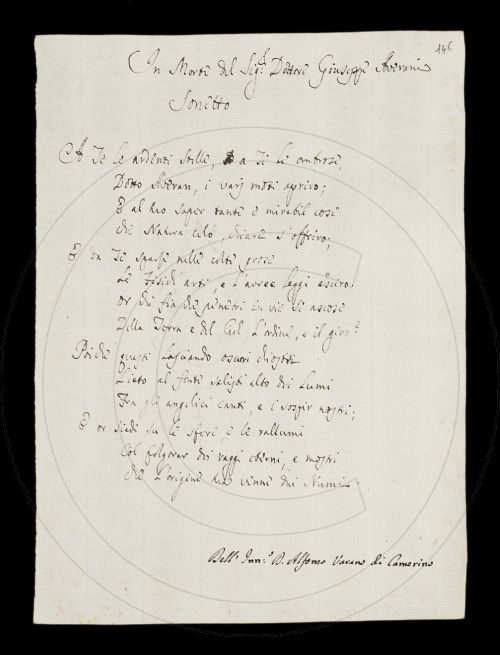 146
In Morte del Sig.r Dottore Giuseppe Averani
Sonetto
A Te le ardenti stelle, a Te le ombrose,
Dotto Averan, i varj moti apriro;
E al tuo saper tante e mirabil cose
che Natura celò, chiare s'offriro;
E da Te sparse nelle colte prose
Le arti, e l'auree leggi
or fra in vie si ascose
Della Terra e del Ciel l'ordine, e il giro.
Poi che questi lasciando oscuri chiostri
Lieto al fonte salisti alto dei Lumi
Tra gli angelici canti, e i sospir nostri;
E or siedi su le sfere, e le rallumi
Col folgorar dei raggi eterni, e mostri
che l'origine tua venne dai Numi.
Dell' D. Alfonso Varano di Camerino